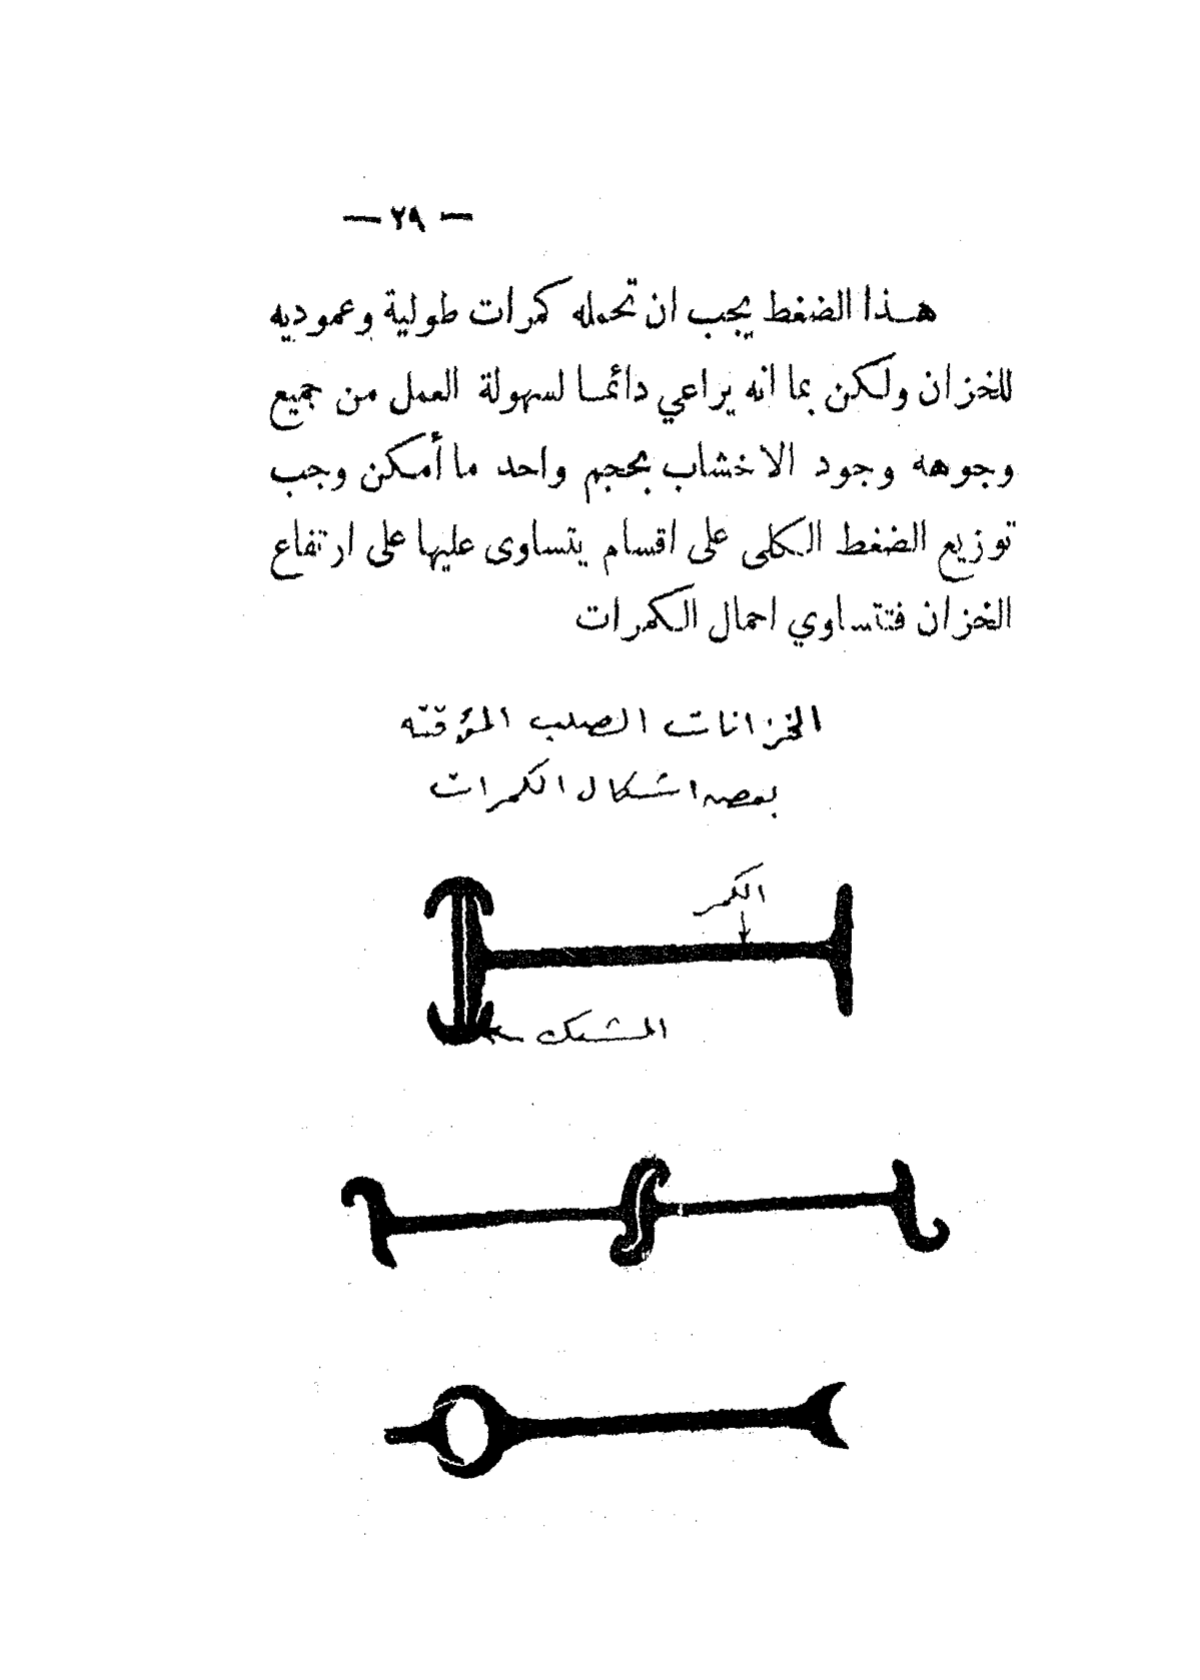 — ٢٩ —
هـذا الضغط يجب ان تحمله كمرات طولية وعموديه
للخزان ولكن بما انه يراعي دائمـا لسهولة العمل من جميع
وجوهه وجود الاخشاب بحجم واحد ما أمكن وجب
توزيع الضغط الكلى على اقسام يتساوى عليها على ارتفاع
الخزان فتتساوي احمال الكمرات
الخزانات الصلب المؤقته
بعض اشكال الكمرات
الكمر
المشبك